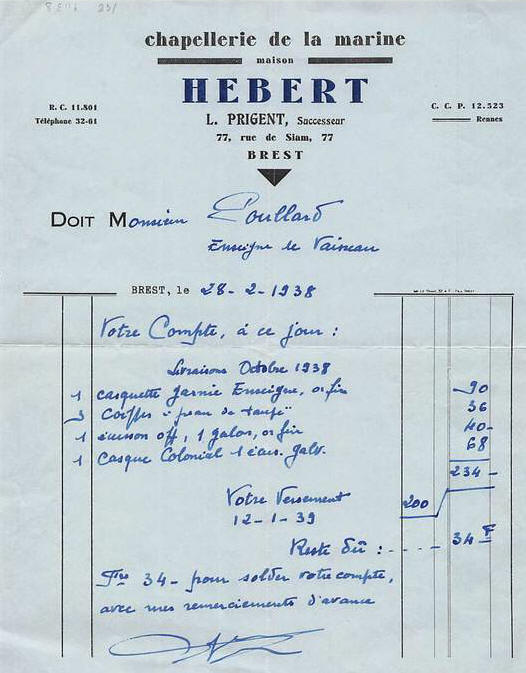 chapellerie de la marine
maison
HEBERT
R. C. 11.801
Téléphone 32-61
L. PRIGENT, Successeur
77, rue de Siam, 77
BREST
C. C. P. 12.523
Rennes
DOIT Monsieur Poullard
Enseigne de Vaisseau
BREST, le 28-2-1938
Votre Compte, à ce jour :
Livraisons Octobre 1938
1 casquette garnie Enseigne, or fin 90
3 Coiffes "peau de taupe" 36
1 écusson off, 1 galon, or fin 40-
1 Casque Colonial 1 écus. galv. 68
234-
Votre Versement 200
12-1-39
Reste dû : - - - - 34 F
Frs 34 - pour solder votre compte,
avec mes remerciements d'avance